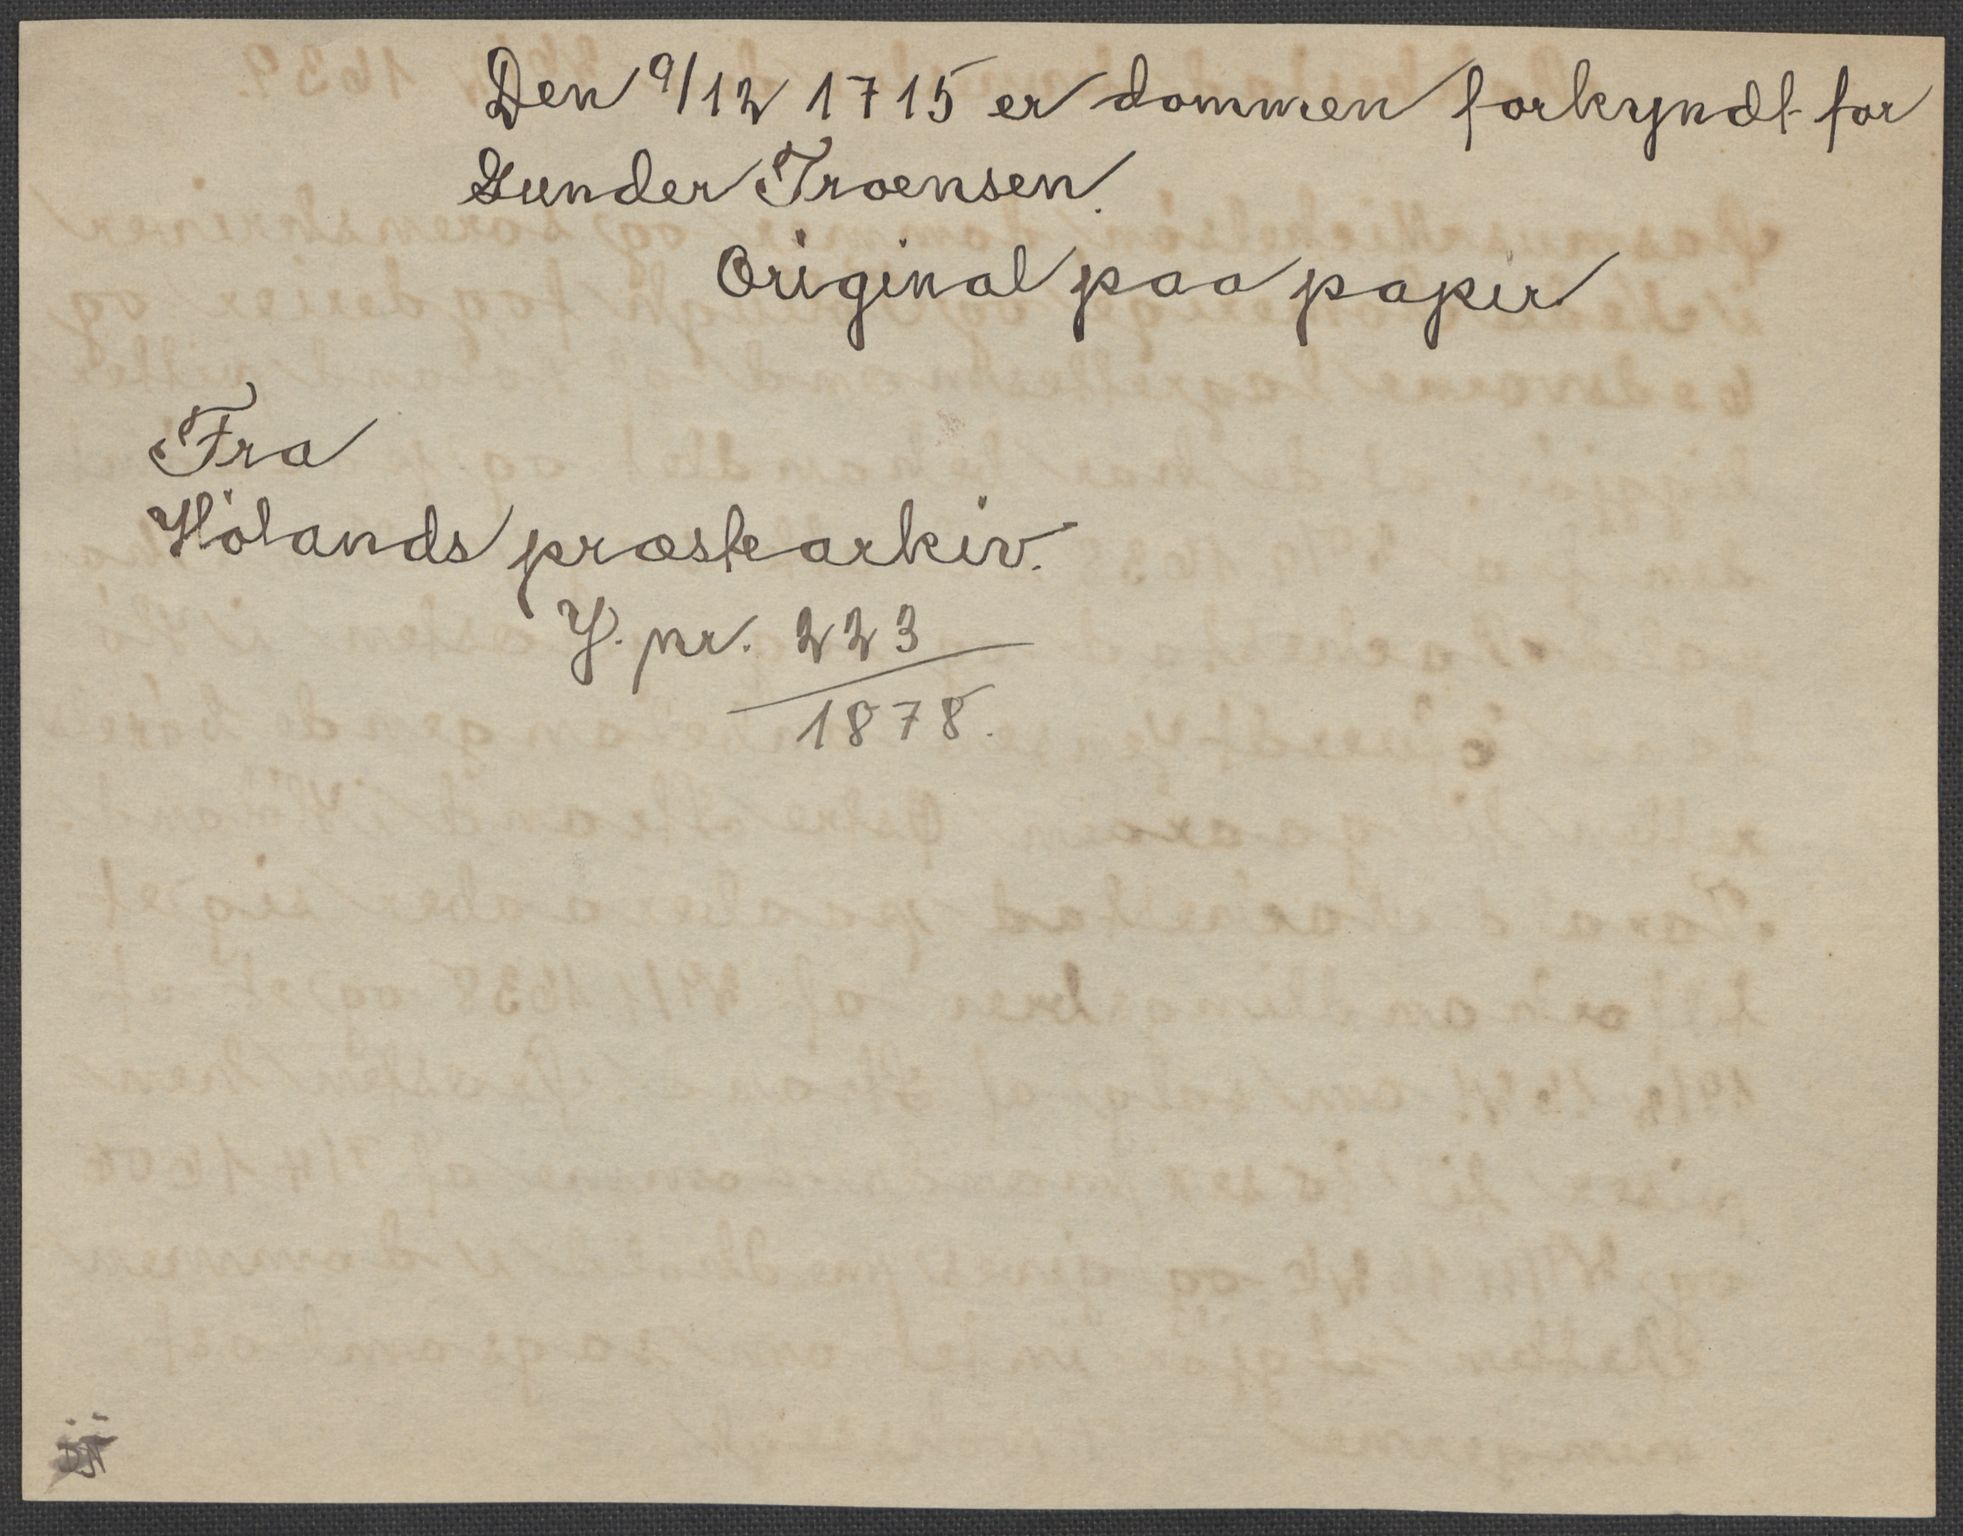 Den 9/12 1715 er dommen forkyndt for
Gunder Troensen.
Original paa papir.
Fra
Hölands præstearkiv.
J. nr. 223
1878.